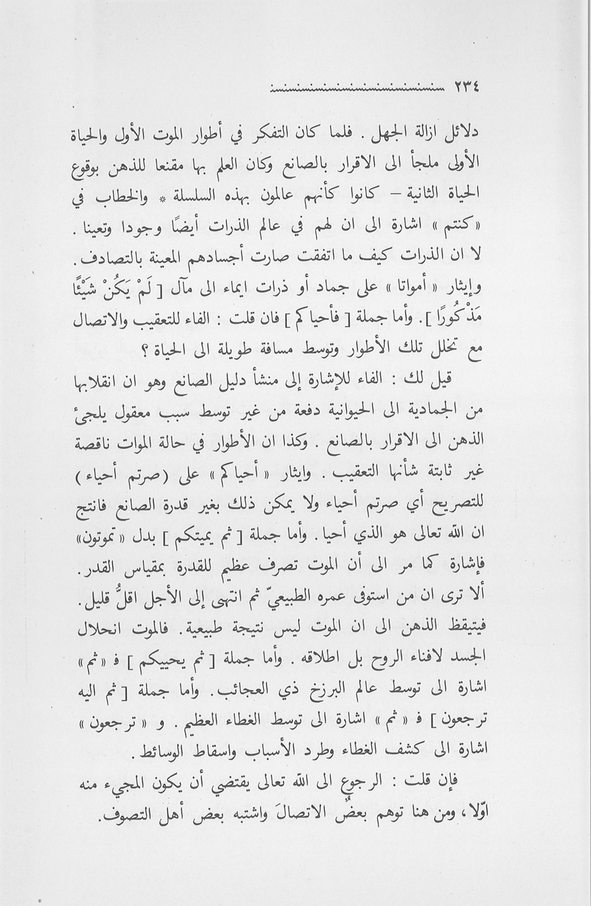 ٢٣٤
دلائل ازالة الجهل . فلما كان التفكر في أطوار الموت الأول والحياة
الأولى ملجأ الى الاقرار بالصانع وكان العلم بها مقنعا للذهن بوقوع
الحياة الثانية – كانوا كأنهم عالمون بهذه السلسلة * والخطاب في
«كنتم» اشارة الى ان لهم في عالم الذرات أيضًا وجودا وتعينا .
لا ان الذرات كيف ما اتفقت صارت أجسادهم المعينة بالتصادف .
وإيثار «أمواتا» على جماد أو ذرات ايماء الى مآل [ لَمْ يَكُنْ شَيْئًا
مَذْكُورًا ] . وأما جملة [ فأحياكم ] فان قلت : الفاء للتعقيب والاتصال
مع تخلل تلك الأطوار وتوسط مسافة طويلة الى الحياة ؟
قيل لك : الفاء للإشارة إلى منشأ دليل الصانع وهو ان انقلابها
من الجمادية الى الحيوانية دفعة من غير توسط سبب معقول يلجئ
الذهن الى الاقرار بالصانع . وكذا ان الأطوار في حالة الموات ناقصة
غير ثابتة شأنها التعقيب . وايثار «أحياكم» على (صرتم أحياء)
للتصريح أي صرتم أحياء ولا يمكن ذلك بغير قدرة الصانع فانتج
ان الله تعالى هو الذي أحيا . وأما جملة [ ثم يميتكم ] بدل «تموتون»
فإشارة كما مر الى أن الموت تصرف عظيم للقدرة بمقياس القدر .
ألا ترى ان من استوفى عمره الطبيعيّ ثم انتهى إلى الأجل اقلُّ قليل .
فيتيقظ الذهن الى ان الموت ليس نتيجة طبيعية . فالموت انحلال
الجسد لافناء الروح بل اطلاقه . وأما جملة [ ثم يحييكم ] ف «ثم»
اشارة الى توسط عالم البرزخ ذي العجائب . وأما جملة [ ثم اليه
ترجعون ] ف «ثم» اشارة الى توسط الغطاء العظيم . و «ترجعون»
اشارة الى كشف الغطاء وطرد الأسباب واسقاط الوسائط .
فإن قلت : الرجوع الى الله تعالى يقتضي أن يكون المجيء منه
اوّلا ، ومن هنا توهم بعضٌ الاتصالَ واشتبه بعض أهل التصوف .